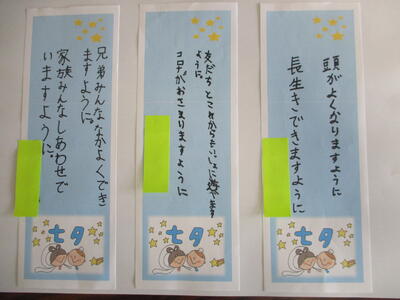 兄弟みんななかよくでき
ますように。
家族みんなしあわせで
いますように。
七夕
友だちとこれからもいっしょに遊べます
ように。
コロナがおさまりますように
七夕
頭がよくなりますように
長生きできますように
七夕